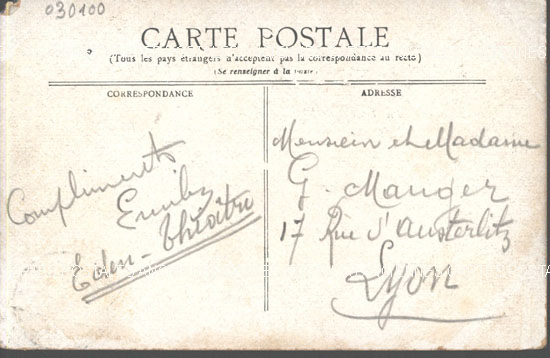 030100
CARTE POSTALE
(Tous les pays étrangers n'acceptent pas la correspondance au recto)
(Se renseigner à la poste)
CORRESPONDANCE
Compliments
Emiley
Eden-Théâtre
ADRESSE
Monsieur et Madame
G. Mauger
17 Rue d'Austerlitz
Lyon